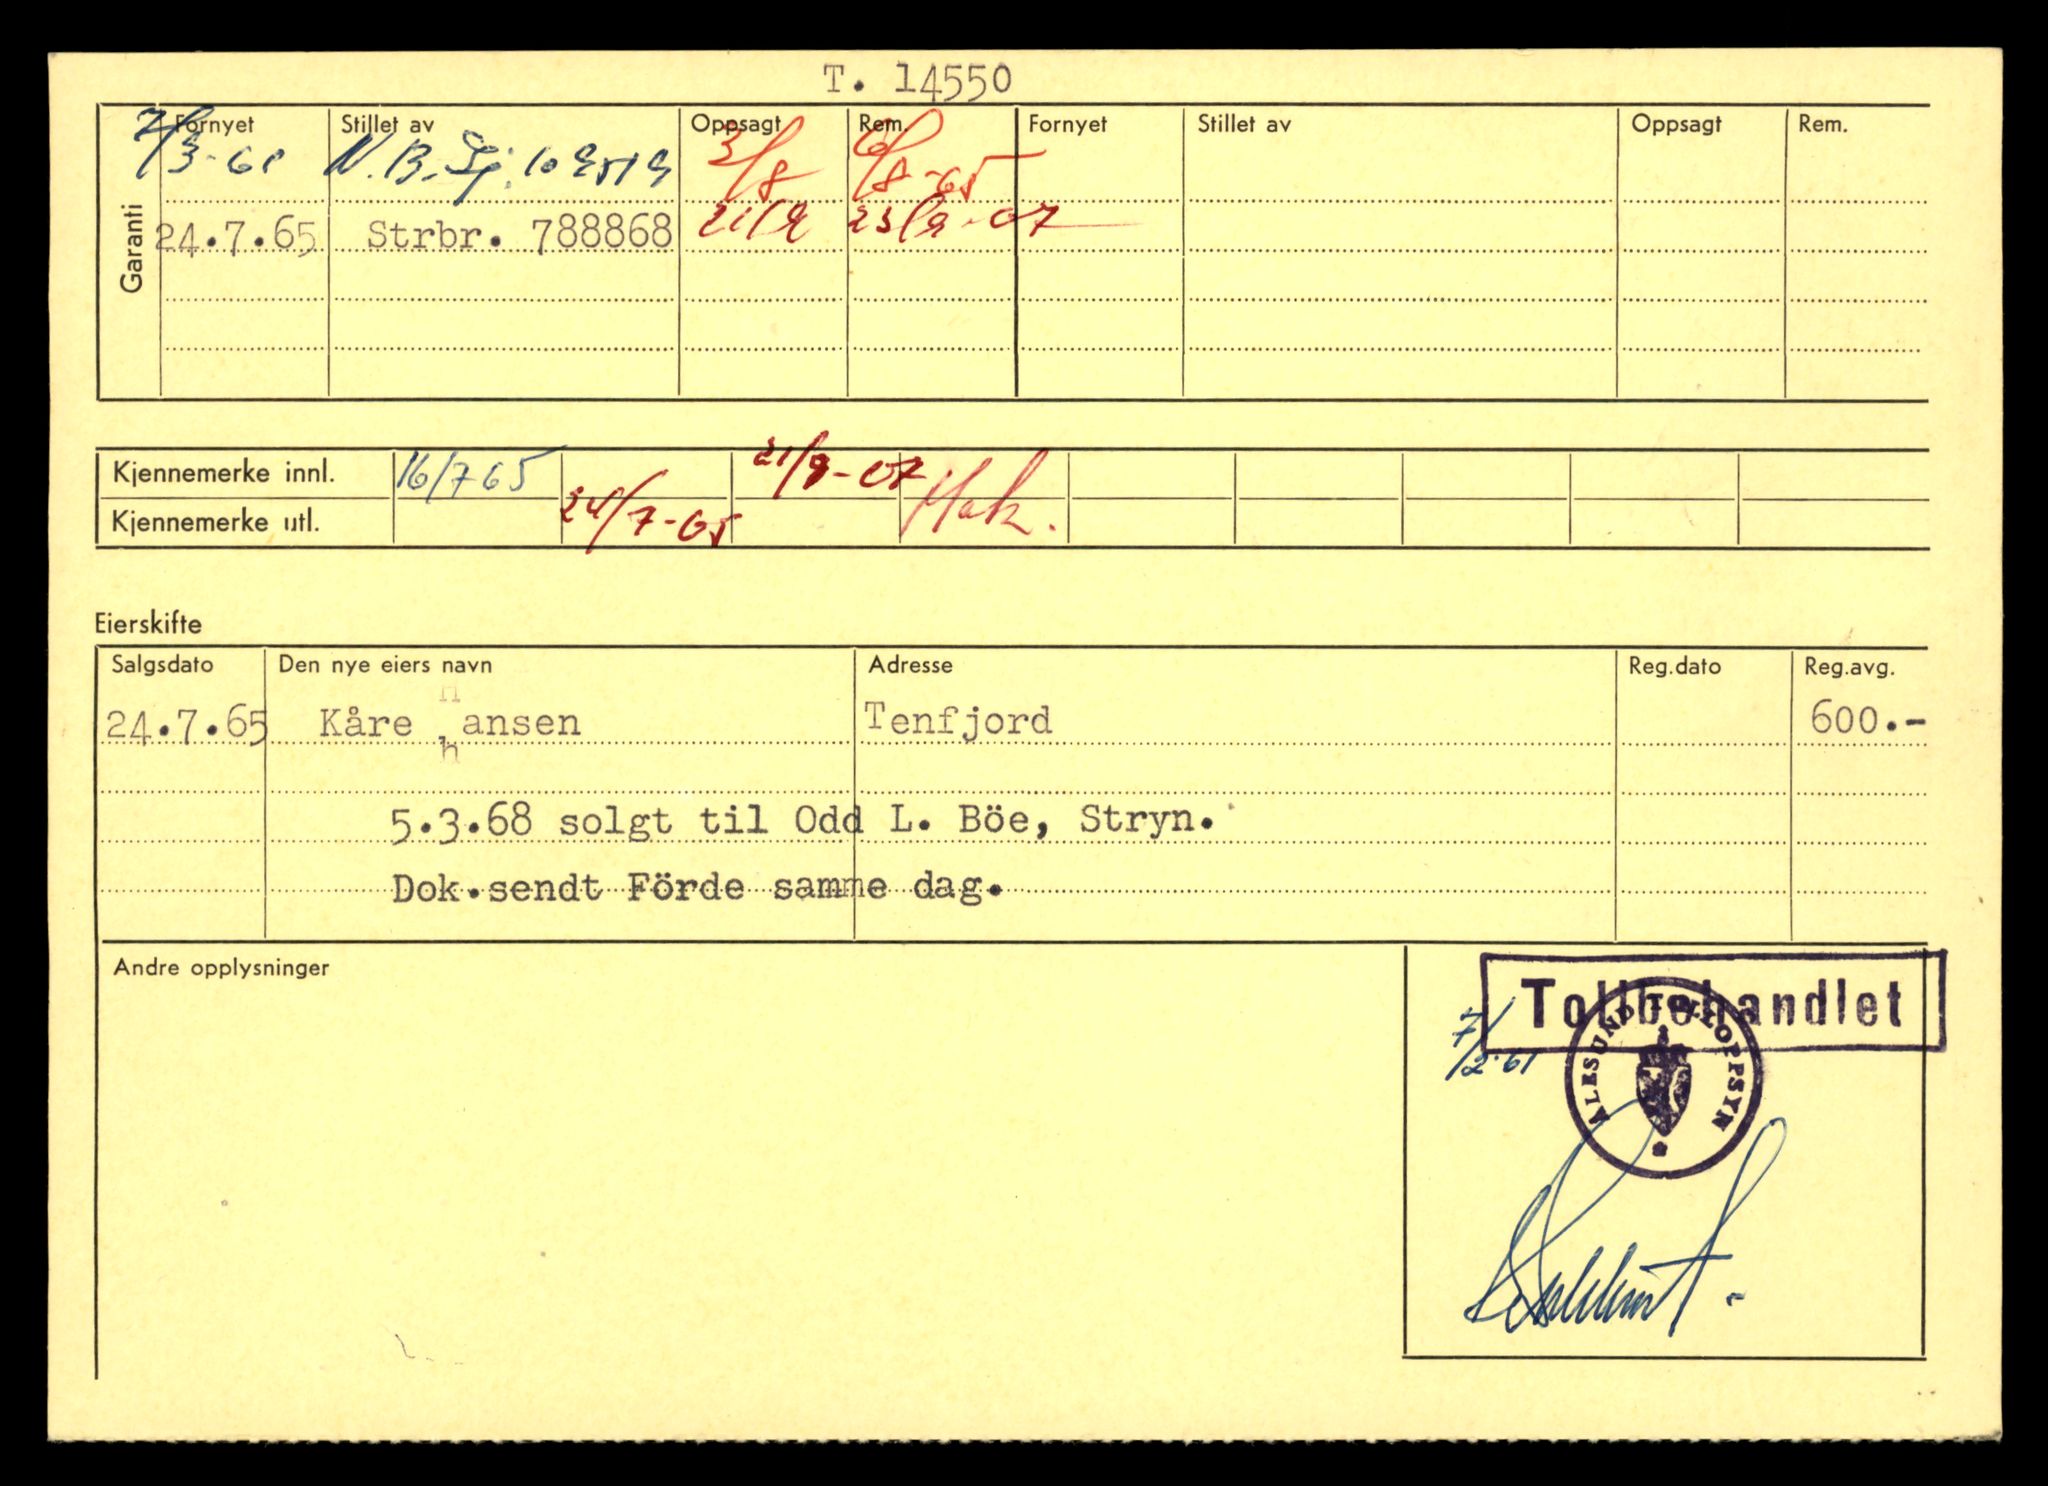 T. 14550
Garanti
Fornyet Stillet av Oppsagt Rem. Fornyet Stillet av Oppsagt Rem.
7/3-61 N.B. 3/8 6/8-65
24.7.65 Strbr. 788868 21/9 23/9-07
Kjennemerke innl. 16/7 65 21/9-07 Mak.
Kjennemerke utl. 24/7-65
Eierskifte
Salgsdato Den nye eiers navn Adresse Reg.dato Reg.avg.
24.7.65 Kåre hansen Tenfjord 600.-
5.3.68 solgt til Odd L. Böe, Stryn.
Dok.sendt Förde samme dag.
Andre opplysninger
Tollbehandlet
7/2-61
ÅLESUND TOLLOPPSYN